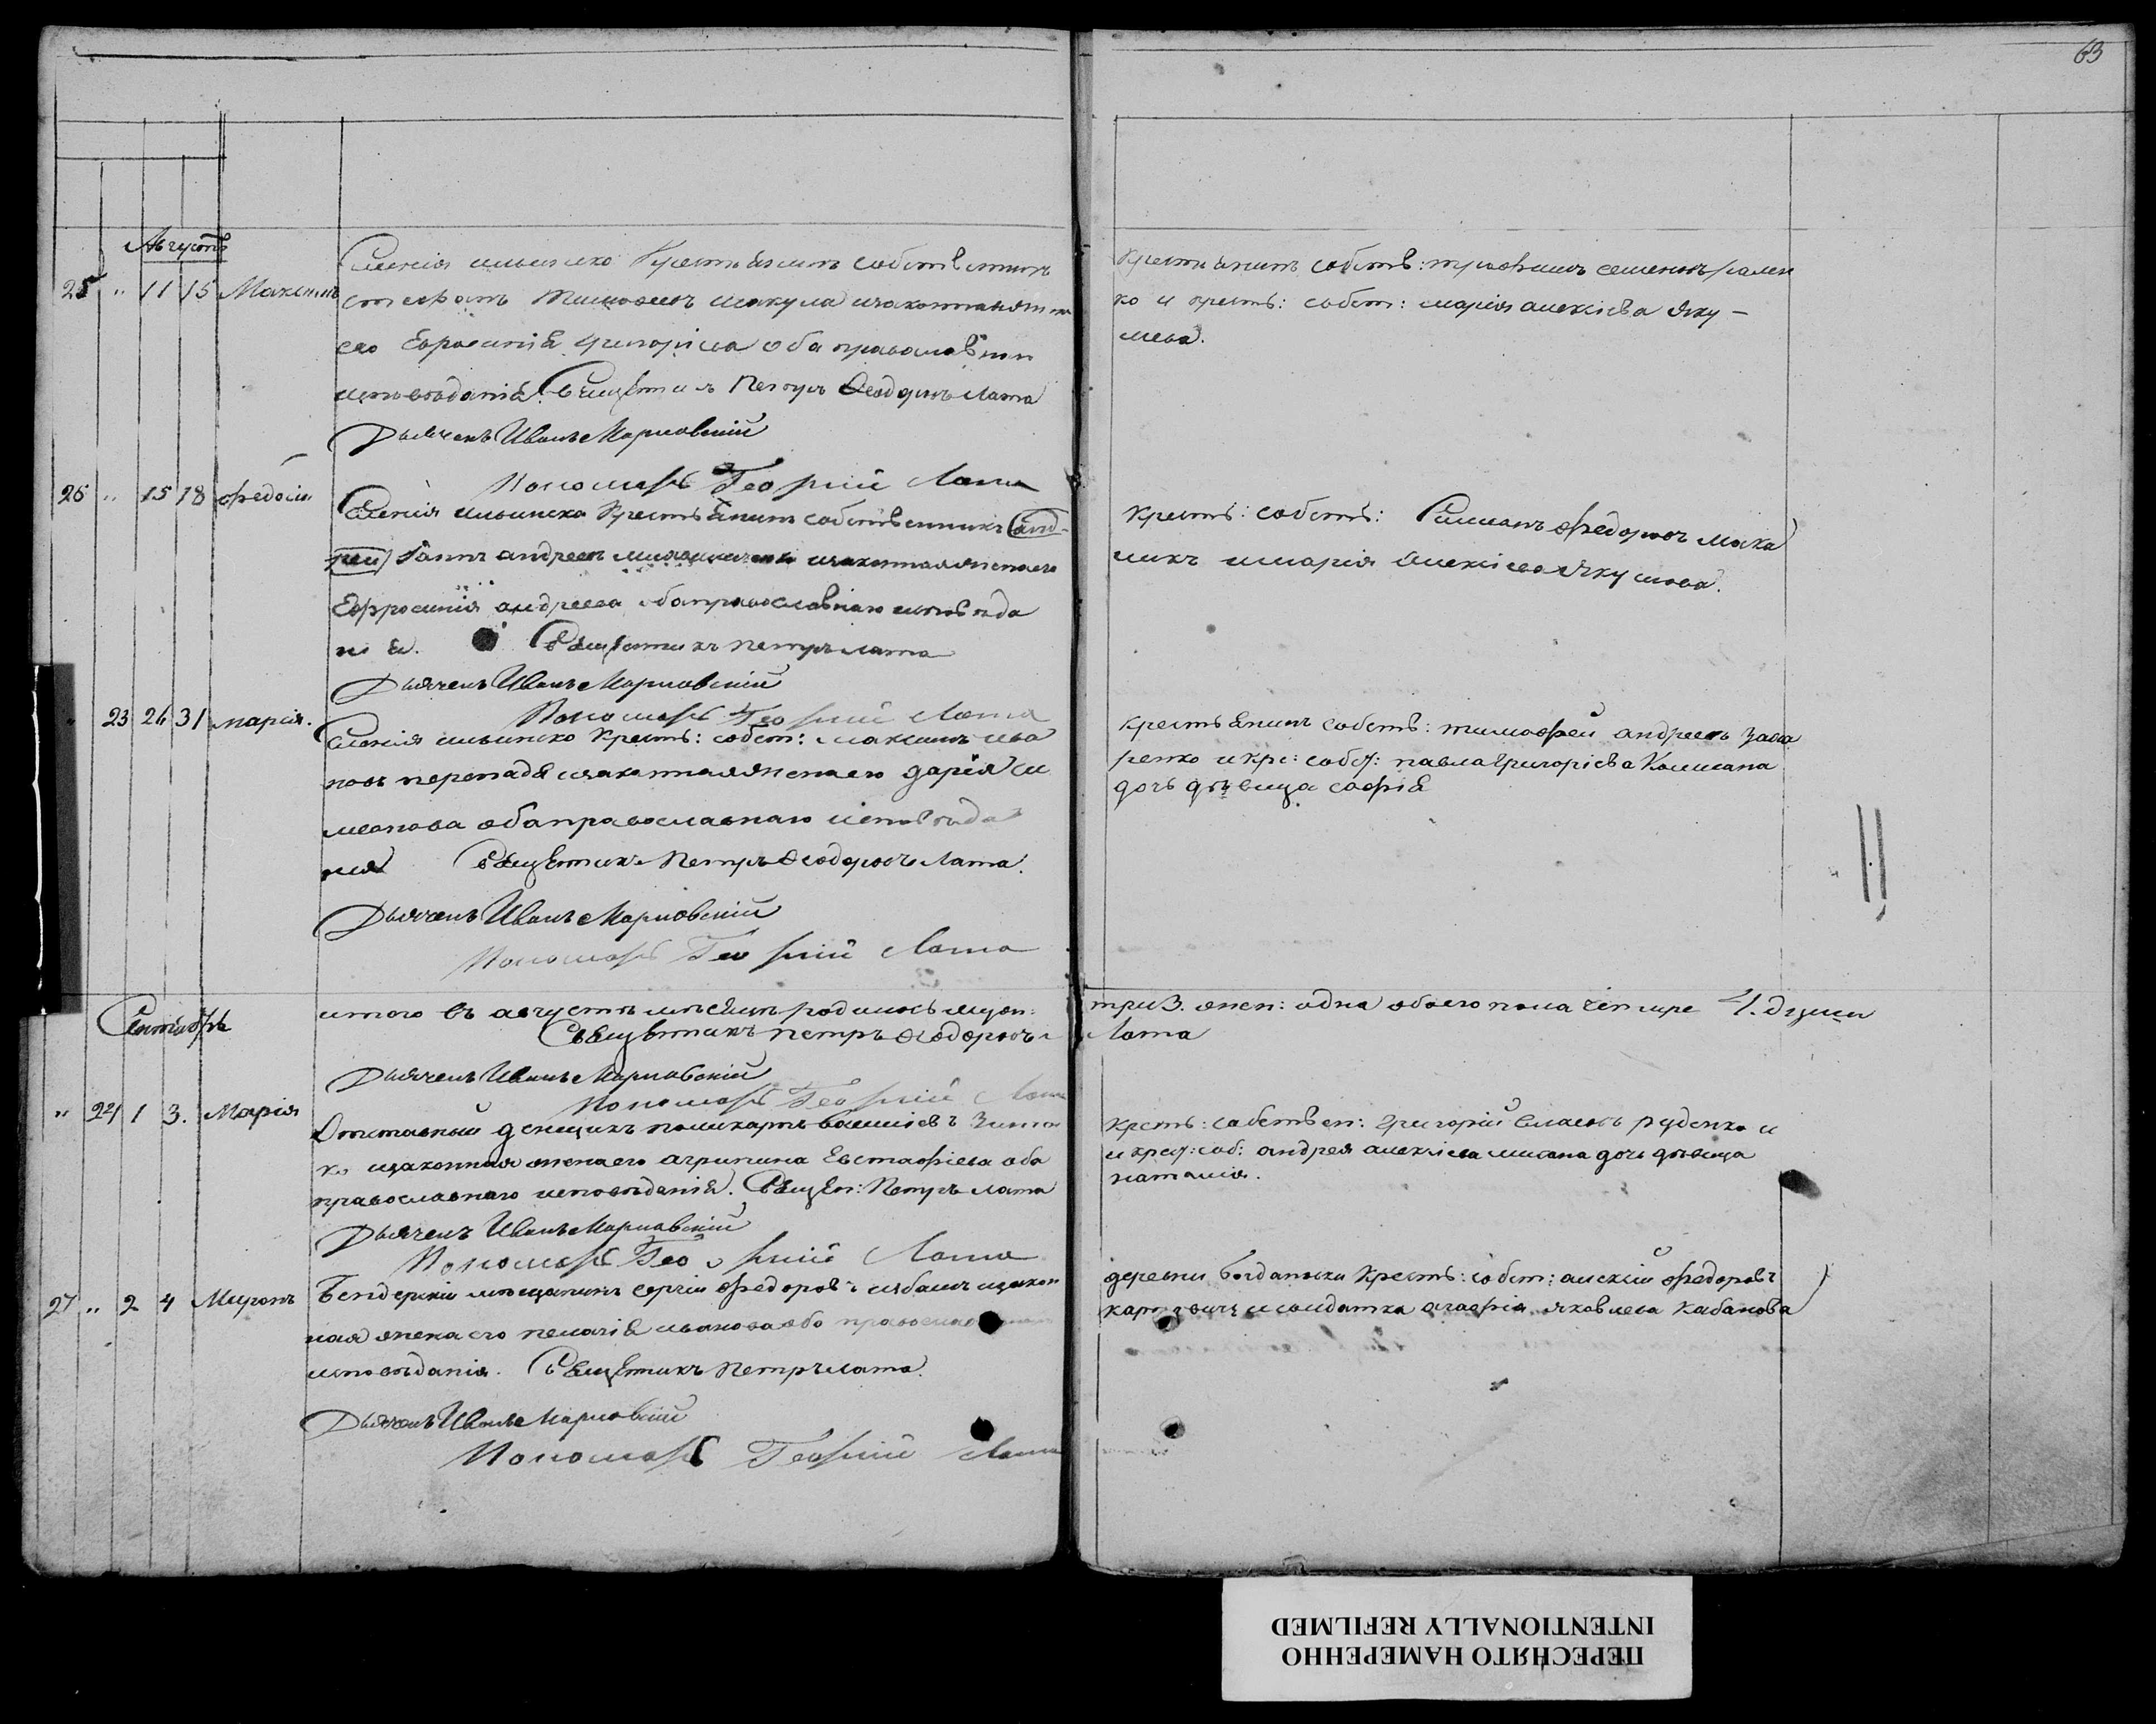 63
Августъ
25 " 11 15 Максимъ
Селенія ильинско Крестьянинъ собственникъ
стефанъ Тимофеевъ изаконная жена
его Ефросинія григоріева оба православнаго
исповѣданія. Священникъ Петръ Феодоровъ Лата
Дьячекъ Иванъ Марковскій
Пономарь Георгій Лата
Крестьянинъ собств: семеновъ
ко и кресть: собст: марія алексіева Яку-
мова.
26 " 15 18 федосій
Селенія ильинско Крестьянинъ собственникъ анд-
рей андреевъ изаконная жена его
Ефросинія андреева оба православнаго исповѣда
нія. Священникъ петръ лата
Дьячекъ Иванъ Марковскій
Пономарь Георгій Лата
кресть: собств: федоровъ
имарія Алексіева Якумова.
" 23 26 31 марія.
Селенія ильинско Кресть: собст: максимъ ива
новъ изаконная жена его дарія си
меонова оба православнаго исповѣда
нія Священникъ Петръ Феодоровъ Лата.
Дьячекъ Иванъ Марковскій
Пономарь Георгій Лата
крестьянинъ собств: тимофей андреевъ заха
ренко и кре: собст: павла григоріева
дочь дѣвица софія
итого въ августѣ мѣсяцѣ родилось мужеск:
три 3. жен: одна обоего пола четыре 4. души
Священникъ петръ Феодоровъ
Лата
Дьячекъ Иванъ Марковскій
Пономарь Георгій Лата
Сентябрь
" 24 1 3. Марія
Отставный денщикъ поликарпъ
ко изаконная жена его агрипина Евстафіева оба
православнаго исповѣданія. Священ: Петръ лата
Дьячекъ Иванъ Марковскій
Пономарь Георгій Лата
кресть: собствен: григорій власовъ руденко и
и крест: соб: андрея алексіева дочь дѣвица
наталія.
27 " 2 4 Миронъ
Бендерскій мѣщанинъ сергій федоровъ изакон
ная жена его пелагія иванова оба православнаго
исповѣданія. Священникъ Петръ лата.
Дьячекъ Иванъ Марковскій
Пономарь Георгій Лата
деревни богдановки Кресть: собст: алексій федоровъ
исолдатка агафія яковлева кабанова
ПЕРЕСНЯТО НАМЕРЕННО
INTENTIONALLY REFILMED